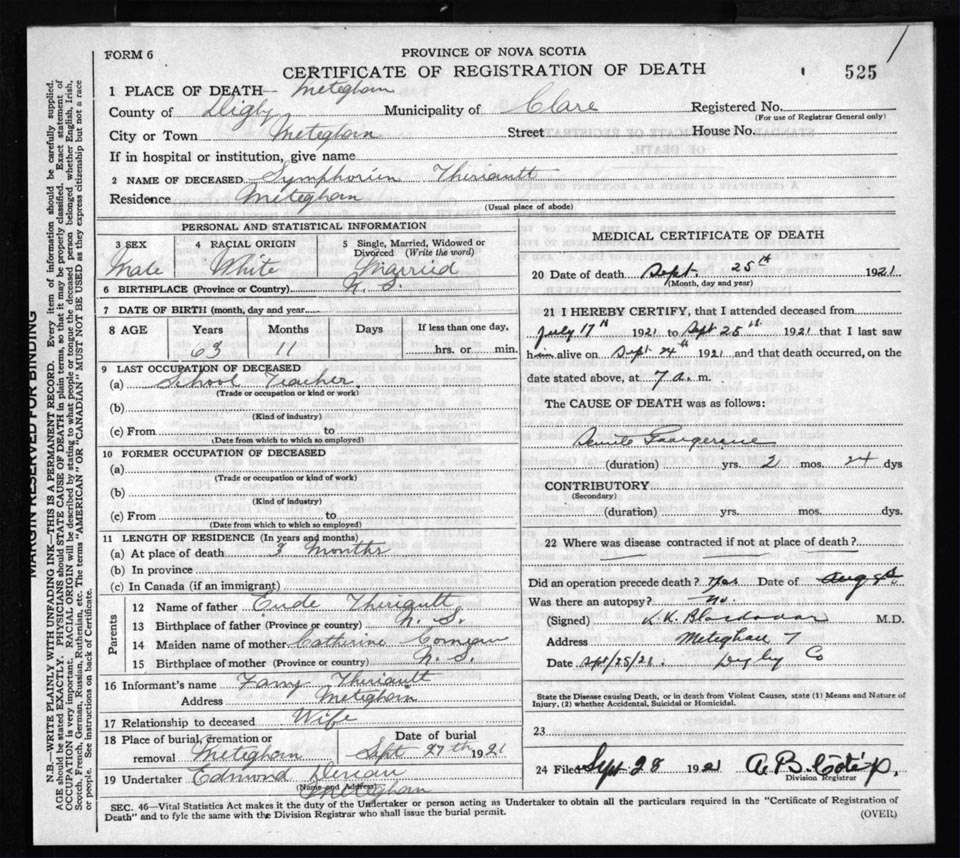 FORM 6
PROVINCE OF NOVA SCOTIA
CERTIFICATE OF REGISTRATION OF DEATH
525
1 PLACE OF DEATH— Meteghan
County of Digby Municipality of Clare Registered No.
(For use of Registrar General only)
City or Town Meteghan Street House No.
If in hospital or institution, give name
2 NAME OF DECEASED Symphorien Theriault
Residence Meteghan
(Usual place of abode)
PERSONAL AND STATISTICAL INFORMATION
3 SEX 4 RACIAL ORIGIN 5 Single, Married, Widowed or Divorced (Write the word)
Male White Married
6 BIRTHPLACE (Province or Country) N. S.
7 DATE OF BIRTH (month, day and year
8 AGE Years Months Days If less than one day,
63 11 hrs. or min.
9 LAST OCCUPATION OF DECEASED
(a) School Teacher
(Trade or occupation or kind or work)
(b)
(Kind of industry)
(c) From to
(Date from which to which so employed)
10 FORMER OCCUPATION OF DECEASED
(a)
(Trade or occupation or kind of work)
(b)
(Kind of industry)
(c) From to
(Date from which to which so employed)
11 LENGTH OF RESIDENCE (In years and months)
(a) At place of death 3 Months
(b) In province
(c) In Canada (if an immigrant)
Parents
12 Name of father Eude Theriault
13 Birthplace of father (Province or country) N. S.
14 Maiden name of mother Catherine Comeau
15 Birthplace of mother (Province or country) N. S.
16 Informant's name Fany Theriault
Address Meteghan
17 Relationship to deceased Wife
18 Place of burial, cremation or removal Meteghan
Date of burial
Sept 27th 1921
19 Undertaker Edmond
(Name and Address)
Meteghan
MEDICAL CERTIFICATE OF DEATH
20 Date of death Sept. 25th 1921
(Month, day and year)
21 I HEREBY CERTIFY, that I attended deceased from
July 17th 1921 to Sept 25th 1921 that I last saw
him alive on Sept 24th 1921 and that death occurred, on the
date stated above, at 7 a. m.
The CAUSE OF DEATH was as follows:
Senile Gangerene
(duration) yrs. 2 mos. 24 dys
CONTRIBUTORY
(Secondary)
(duration) yrs. mos. dys.
22 Where was disease contracted if not at place of death?
Did an operation precede death? Yes Date of Aug
Was there an autopsy? No.
(Signed) M.D.
Address Meteghan
Date Sept/25/21. Digby Co
State the Disease causing Death, or in death from Violent Causes, state (1) Means and Nature of
Injury, (2) whether Accidental, Suicidal or Homicidal.
23
24 Filed Sept 28 1921 A. B.
Division Registrar
SEC. 46—Vital Statistics Act makes it the duty of the Undertaker or person acting as Undertaker to obtain all the particulars required in the "Certificate of Registration of
Death" and to fyle the same with the Division Registrar who shall issue the burial permit.
(OVER)
MARGIN RESERVED FOR BINDING
N.B.—WRITE PLAINLY WITH UNFADING INK—THIS IS A PERMANENT RECORD. Every item of information should be carefully supplied.
AGE should be stated EXACTLY. PHYSICIANS should STATE CAUSE OF DEATH in plain terms, so that it may be properly classified. Exact statement of
OCCUPATION is very important. RACIAL ORIGIN will be described by stating to what people or tongue the deceased person belonged whether English, Irish,
Scotch, French, German, Russian, Ruthenian, etc. The terms "AMERICAN" OR "CANADIAN" MUST NOT BE USED as they express citizenship but not a race
or people. See instructions on back of Certificate.